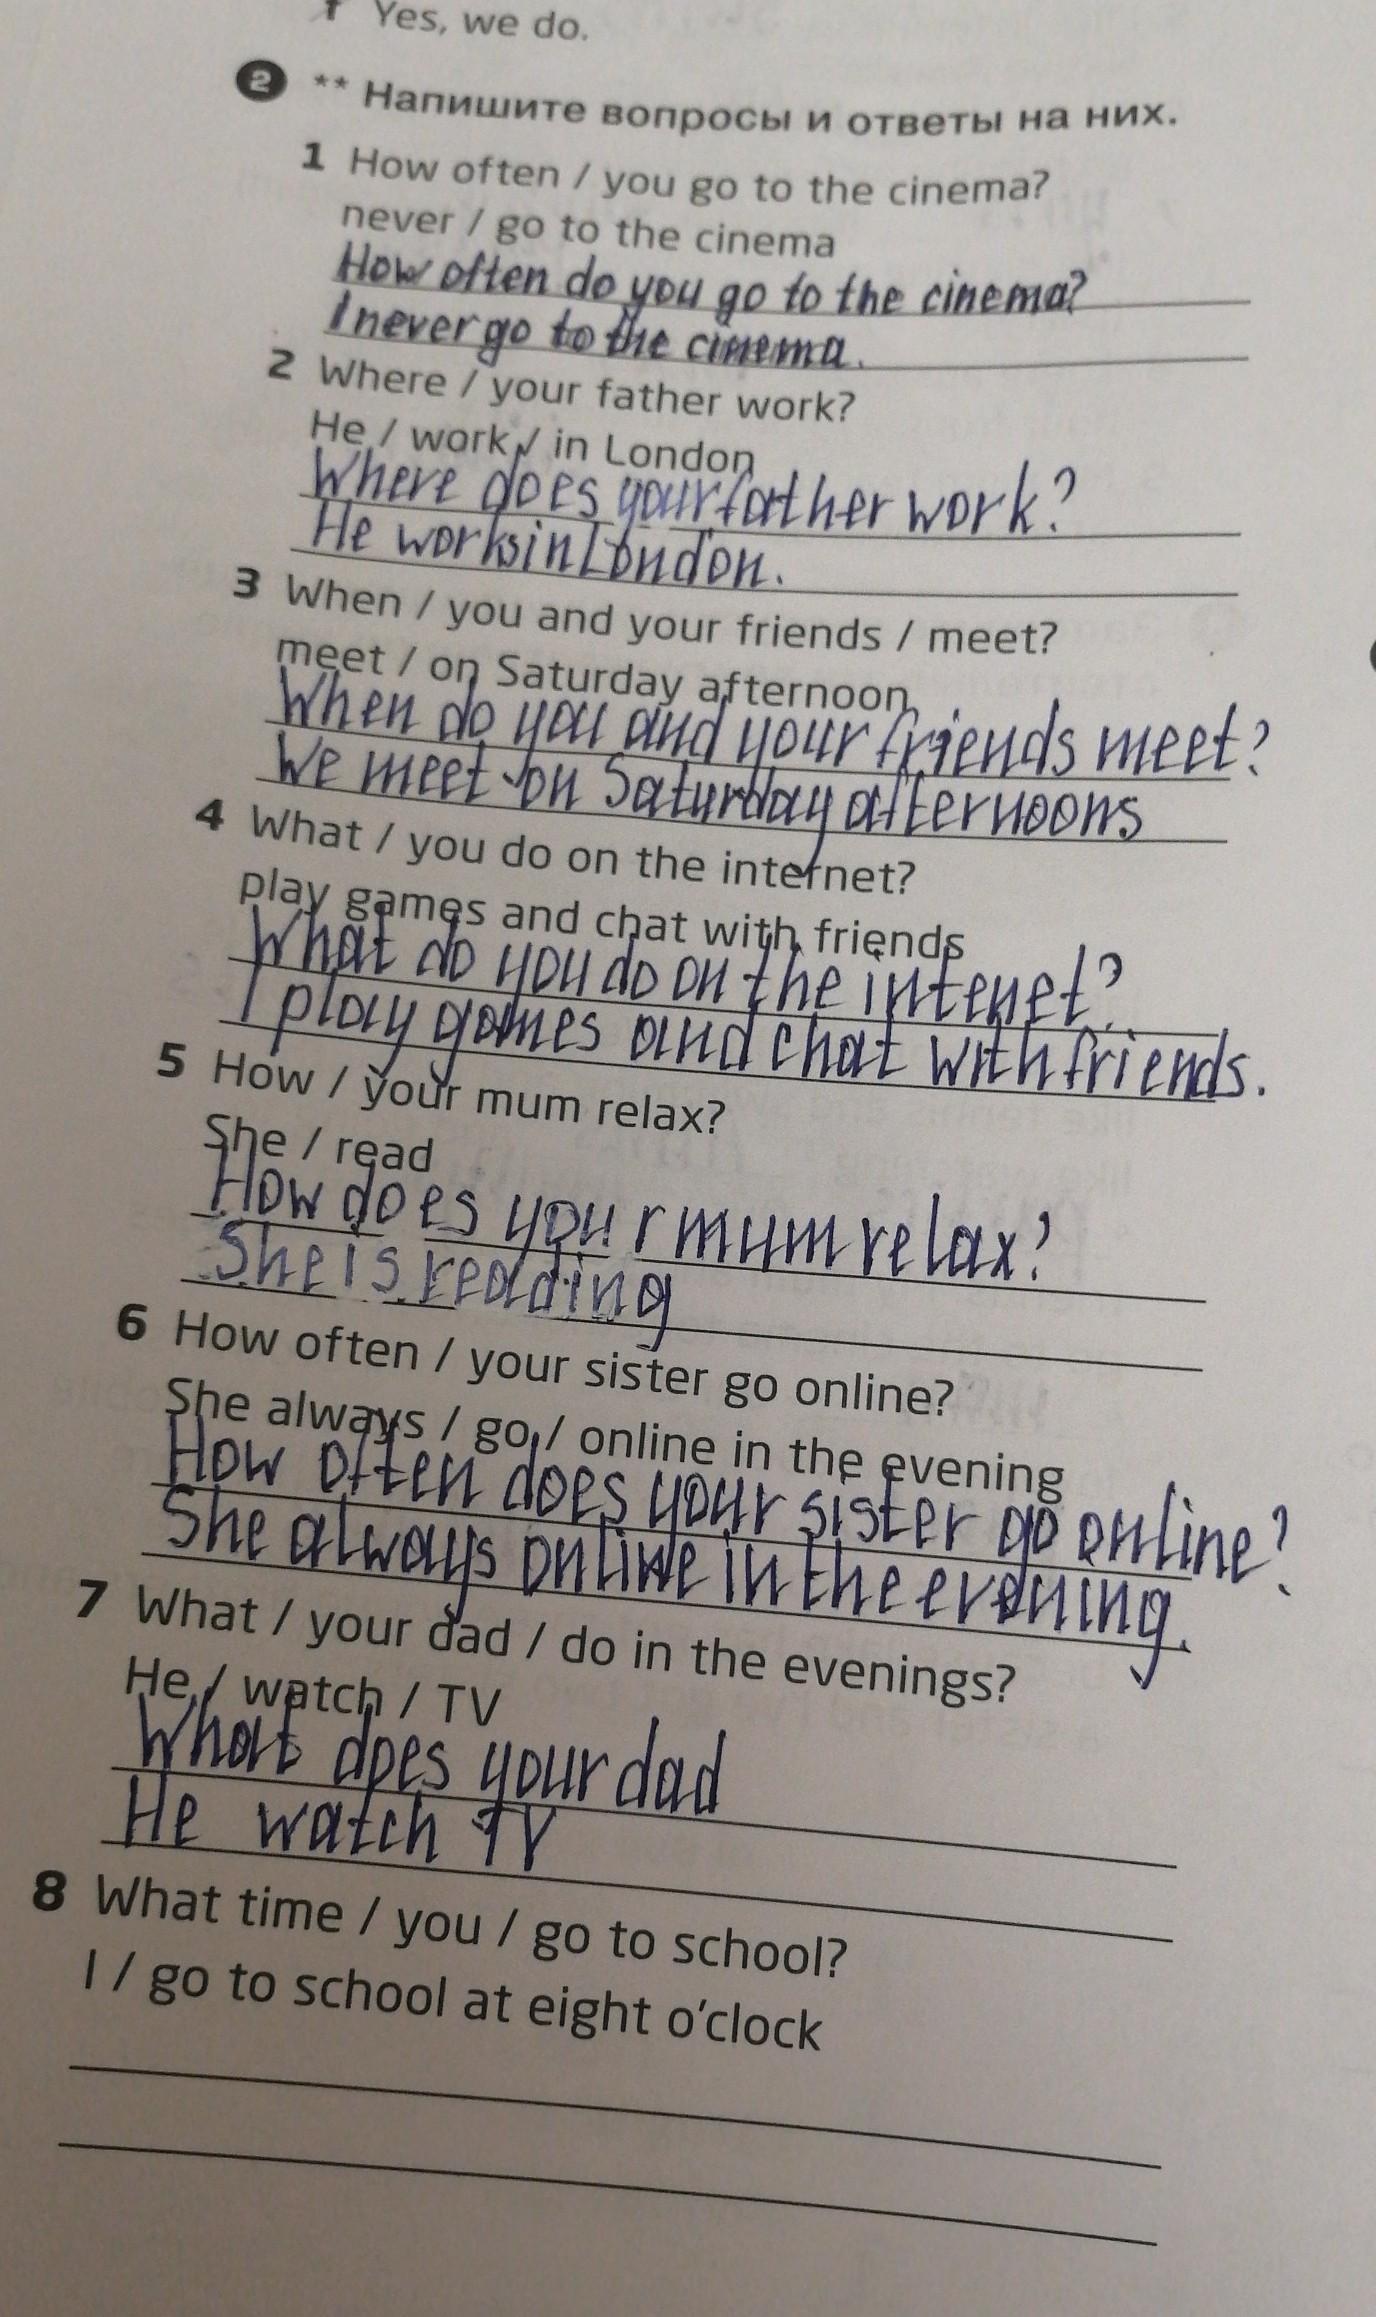 f Yes, we do.
2 ** Напишите вопросы и ответы на них.
1 How often / you go to the cinema?
never / go to the cinema
How often do you go to the cinema?
I never go to the cinema.
2 Where / your father work?
He / work / in London
Where does your father work?
He works in London.
3 When / you and your friends / meet?
meet / on Saturday afternoon
When do you and your friends meet?
We meet on Saturday afternoons
4 What / you do on the internet?
play games and chat with friends
What do you do on the intenet?
I play games and chat with friends.
5 How / your mum relax?
She / read
How does your mum relax?
She is reading
6 How often / your sister go online?
She always / go / online in the evening
How often does your sister go online?
She always online in the evening.
7 What / your dad / do in the evenings?
He / watch / TV
What does your dad
He watch TV
8 What time / you / go to school?
I / go to school at eight o'clock